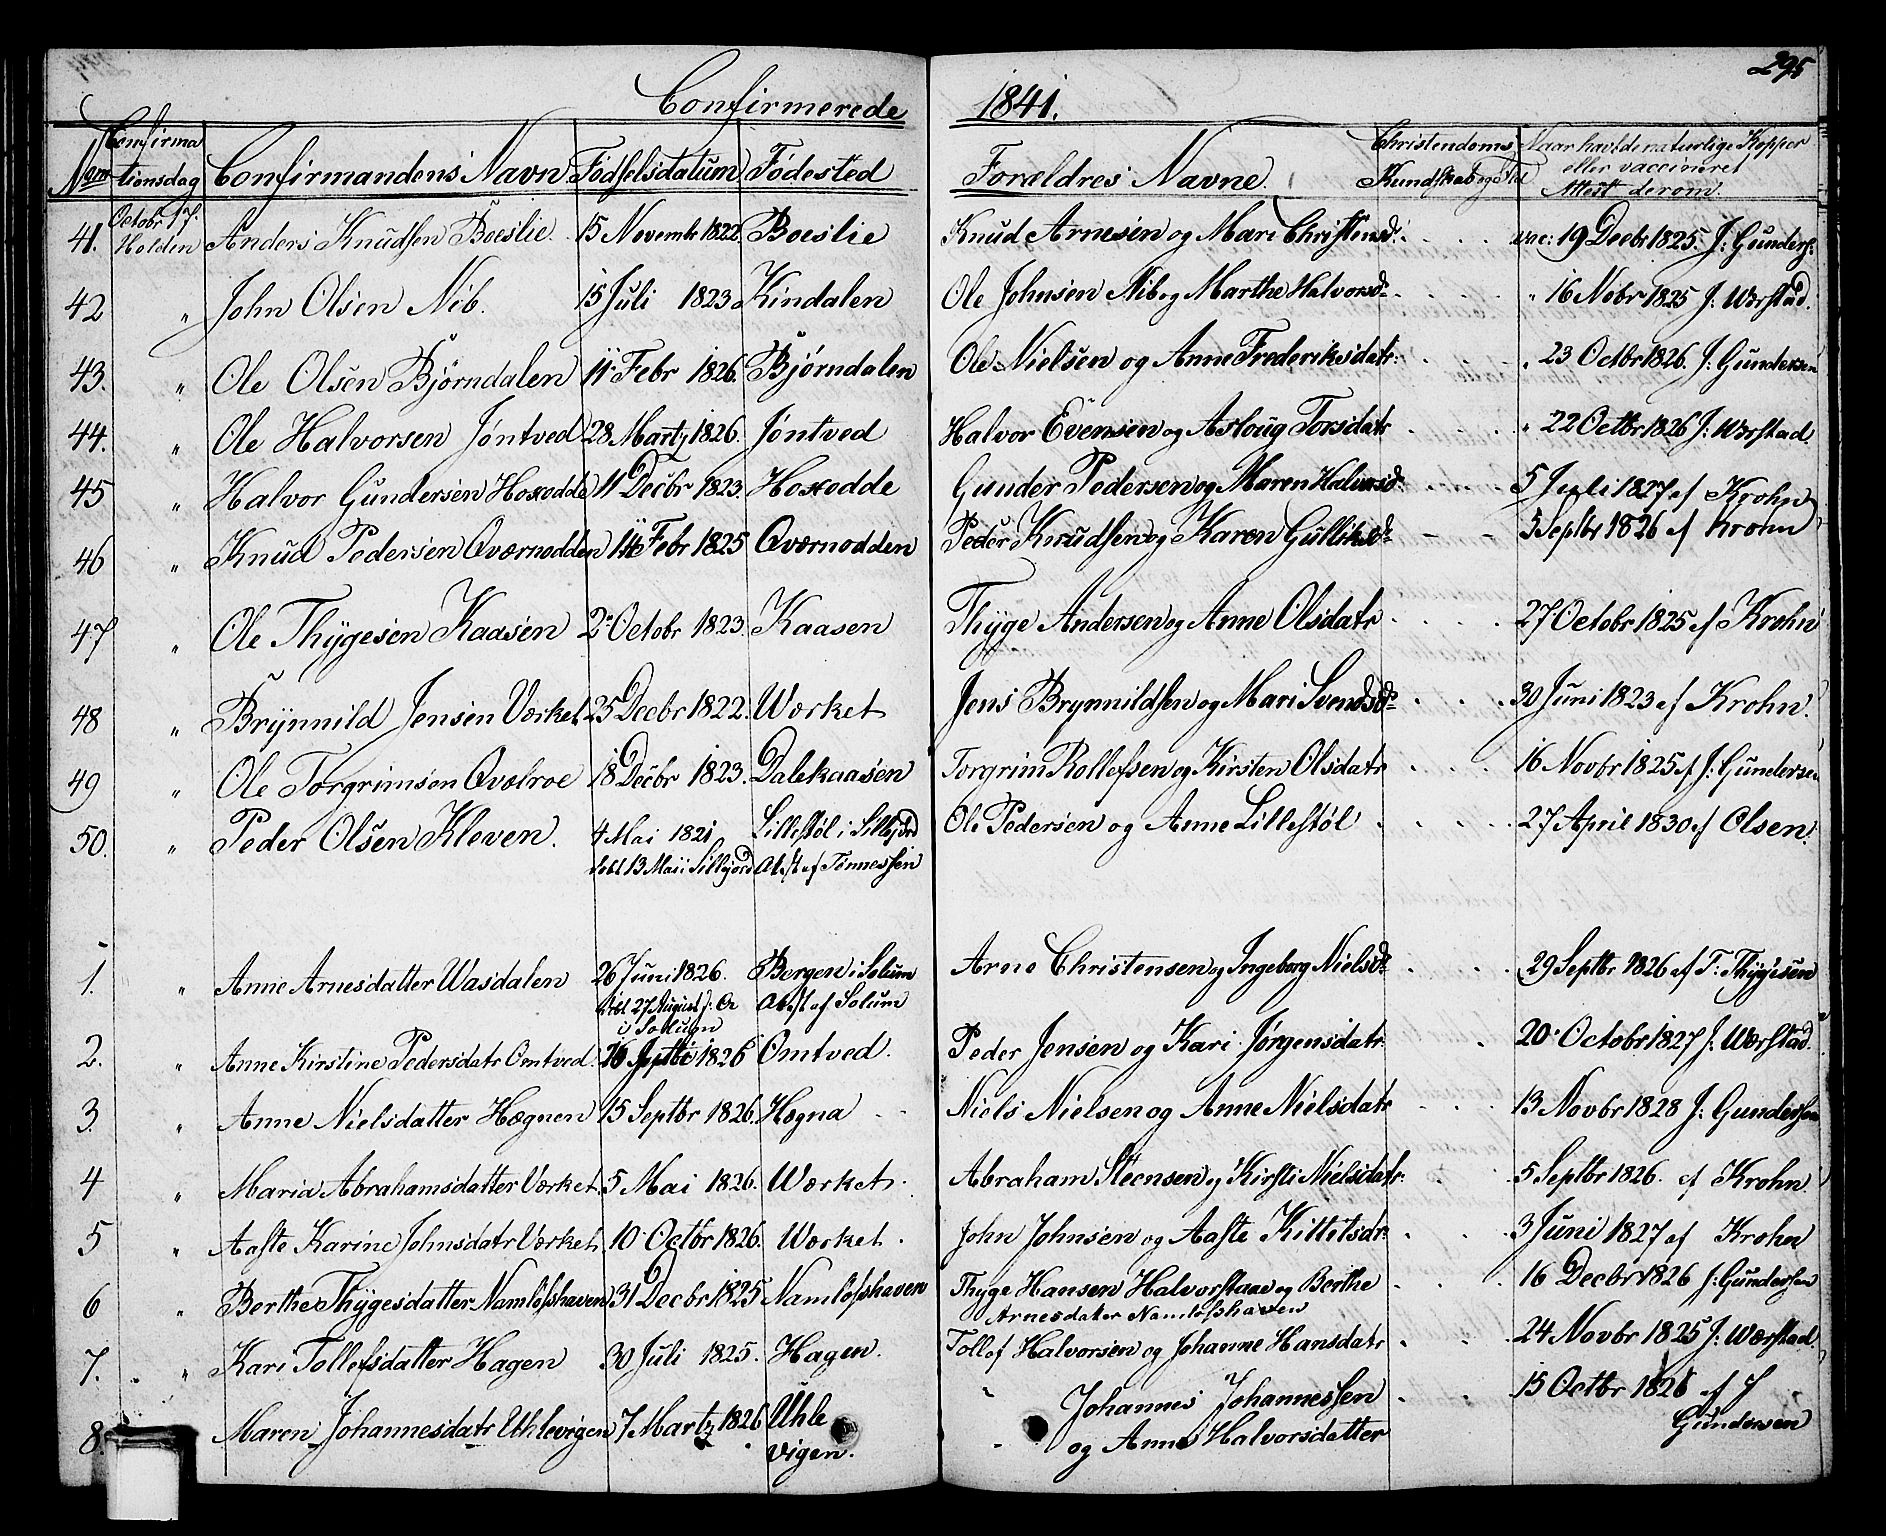 295
Confirmerede 1841.
Num Confirmationsdag Confirmandens Navn Fødselsdatum Fødested Forældres Navne. Christendoms Kundskab og Naar havt de naturlige Kopper eller vaccineret Attest derom.
41. Octobr 17. Holden Anders Knudsen Boeslie. 15 Novembr 1822. Boeslie Knud Arnesen og Mari Christensd: vac: 19 Decbr 1825. J: Gunders:
42 " John Olsen Nib. 15 Juli 1823 Kindalen Ole Johnsen Nib og Marthe Halvorsd " 16 Nobr 1825 J: Worstad.
43. " Ole Olsen Bjørndalen 11 Febr 1826. Bjørndalen Ole Nielsen og Anne Frederiksdatr: " 23 Octbr 1826. J: Gundersen
44. " Ole Halvorsen Jøntved 28 Marty 1826. Jøntved Halvor Evensen og Asloug Torsdatr " 22 Octbr 1826 J: Worstad
45 " Halvor Gundersen Hoxodde 11 Decbr 1823. Hoxodde Gunder Pedersen og Maren Halvorsd: 5 Juli 1827 af Krohn
46 " Knud Pedersen Qværnodden 14 Febr 1825 Qværnodden Peder Knudsen og Karen Gulliksd 5 Septbr 1826 af Krohn
47 " Ole Thygesen Kaasen 2 Octobr 1823. Kaasen Thyge Andersen og Anne Olsdatr 27 Octobr 1825 af Krohn
48 " Brynnild Jensen Værket 25 Decbr 1822. Værket Jens Brynnildsen og Mari Svendsd 30 Juni 1823 af Krohn.
49 " Ole Torgrimsen Qvelroe 18 Decbr 1823. Dalekaasen Torgrim Rollefsen og Kirsten Olsdatr 16 Novbr 1825 af J: Gundersen
50. " Peder Olsen Kleven. 4 Mai 1821 Lillestøl i Sillejord Ole Pedersen og Anne Lillestøl 27 April 1830 af Olsen.
døbt 13 Mai i Sillejord Atest af Tønnessen
1. " Anne Arnesdatter Wasdalen 26 Juni 1826. Bergen i Solum Arne Christensen og Ingeborg Nielsd 29 Septbr 1826 af T: Thygesen
døbt 27 August i Solum Atest af Solum
2. " Anne Kirstine Pedersdatr Omtved. 16 1826 Omtved. Peder Jensen og Kari Jørgensdatr 20 October 1827 J: Worstad.
3. " Anne Nielsdatter Hægnen 15 Septbr 1826. Hægna Niels Nielsen og Anne Nielsdatr 13 Novbr 1828 J: Gundersen
4 " Maria Abrahamsdatter Værket. 5 Mai 1826. Værket. Abraham Steensen og Kirsti Nielsdatr. 5 Septbr 1826. af Krohn
5 " Aaste Karine Johnsdatr Værket. 10 Octbr 1826. Værket. John Johnsen og Aaste Kittilsdr: 3 Juni 1827 af Krohn
6 " Berthe Thygesdatter Namløshaven 31 Decbr 1825 Namløshaven Thyge Hansen Halvorstaae og Berthe 16 Decbr 1826 J: Gundersen
Arnesdater Namløshaven
7. " Kari Tollefsdatter Hagen 30 Juli 1825. Hagen. Tollef Halvorsen og Johanne Hansdatr 24 Novbr 1825 J: Worstad.
8. Maren Johannesdatr Uhlevigen 7 Marty 1826 Uhle Johannes Johannessen 15 Octbr 1826 af J
vigen. og Anne Halvorsdatter Gundersen